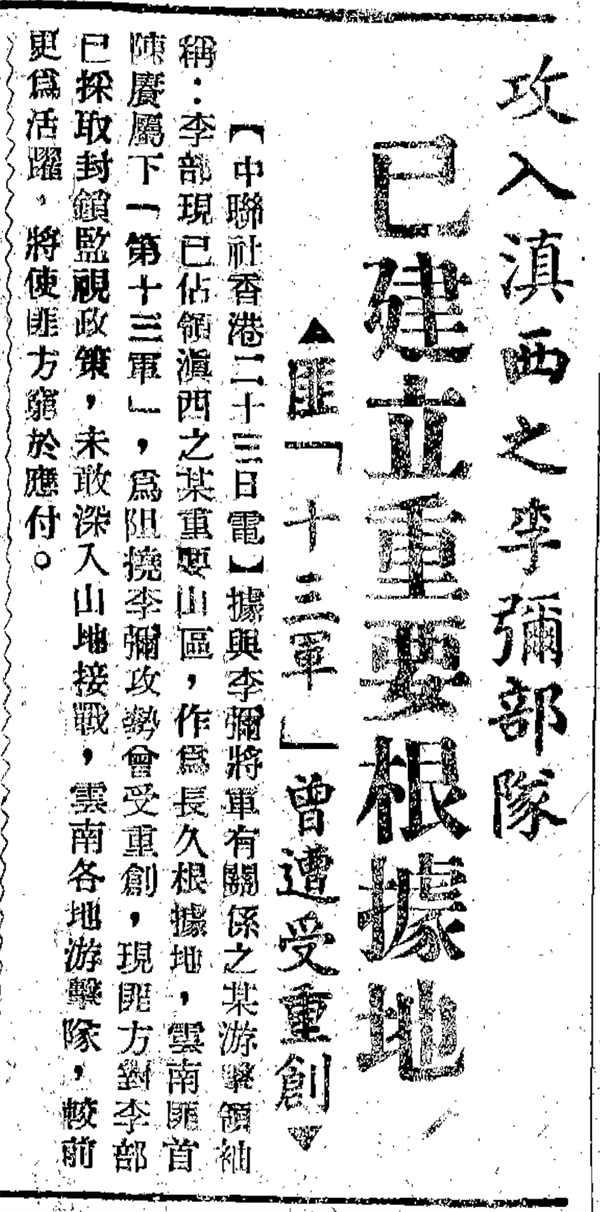 攻入滇西之李彌部隊
已建立重要根據地
▲匪「十三軍」曾遭受重創▼
【中聯社香港二十三日電】據與李彌將軍有關係之某游擊領袖
稱：李部現已佔領滇西之某重要山區，作爲長久根據地，雲南匪首
陳賡屬下「第十三軍」，爲阻撓李彌攻勢曾受重創，現匪方對李部
已採取封鎖監視政策，未敢深入山地接戰，雲南各地游擊隊，較前
更爲活躍，將使匪方窮於應付。